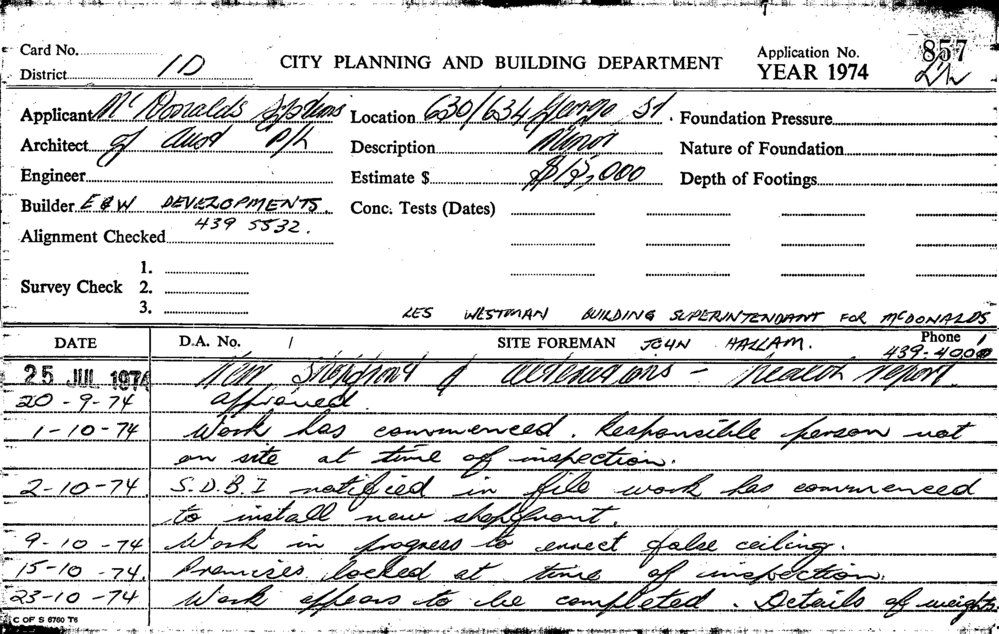 Card No.
District 1D
CITY PLANNING AND BUILDING DEPARTMENT
Application No. 857
YEAR 1974
Applicant Mc Donalds Systems
Location 630/634 George St.
Foundation Pressure
Architect of Aust P/L
Description Minor
Nature of Foundation
Engineer
Estimate $ $12,000
Depth of Footings
Builder E & W DEVELOPMENTS.
439 5532.
Conc. Tests (Dates)
Alignment Checked
Survey Check
1.
2.
3.
LES WESTMAN BUILDING SUPERINTENDANT FOR McDONALDS
DATE D.A. No. / SITE FOREMAN JOHN HALLAM. Phone
439-4000
25 JUL 1974 New Shopfront & alterations - Health report
20-9-74 approved.
1-10-74 Work has commenced. Responsible person not
on site at time of inspection.
2-10-74 S.D.B.I notified in file work has commenced
to install new shopfront.
9-10-74 Work in progress to errect false ceiling.
15-10-74. Premises locked at time of inspection.
23-10-74 Work appears to be completed. Details of weights
C OF S 6760 T6